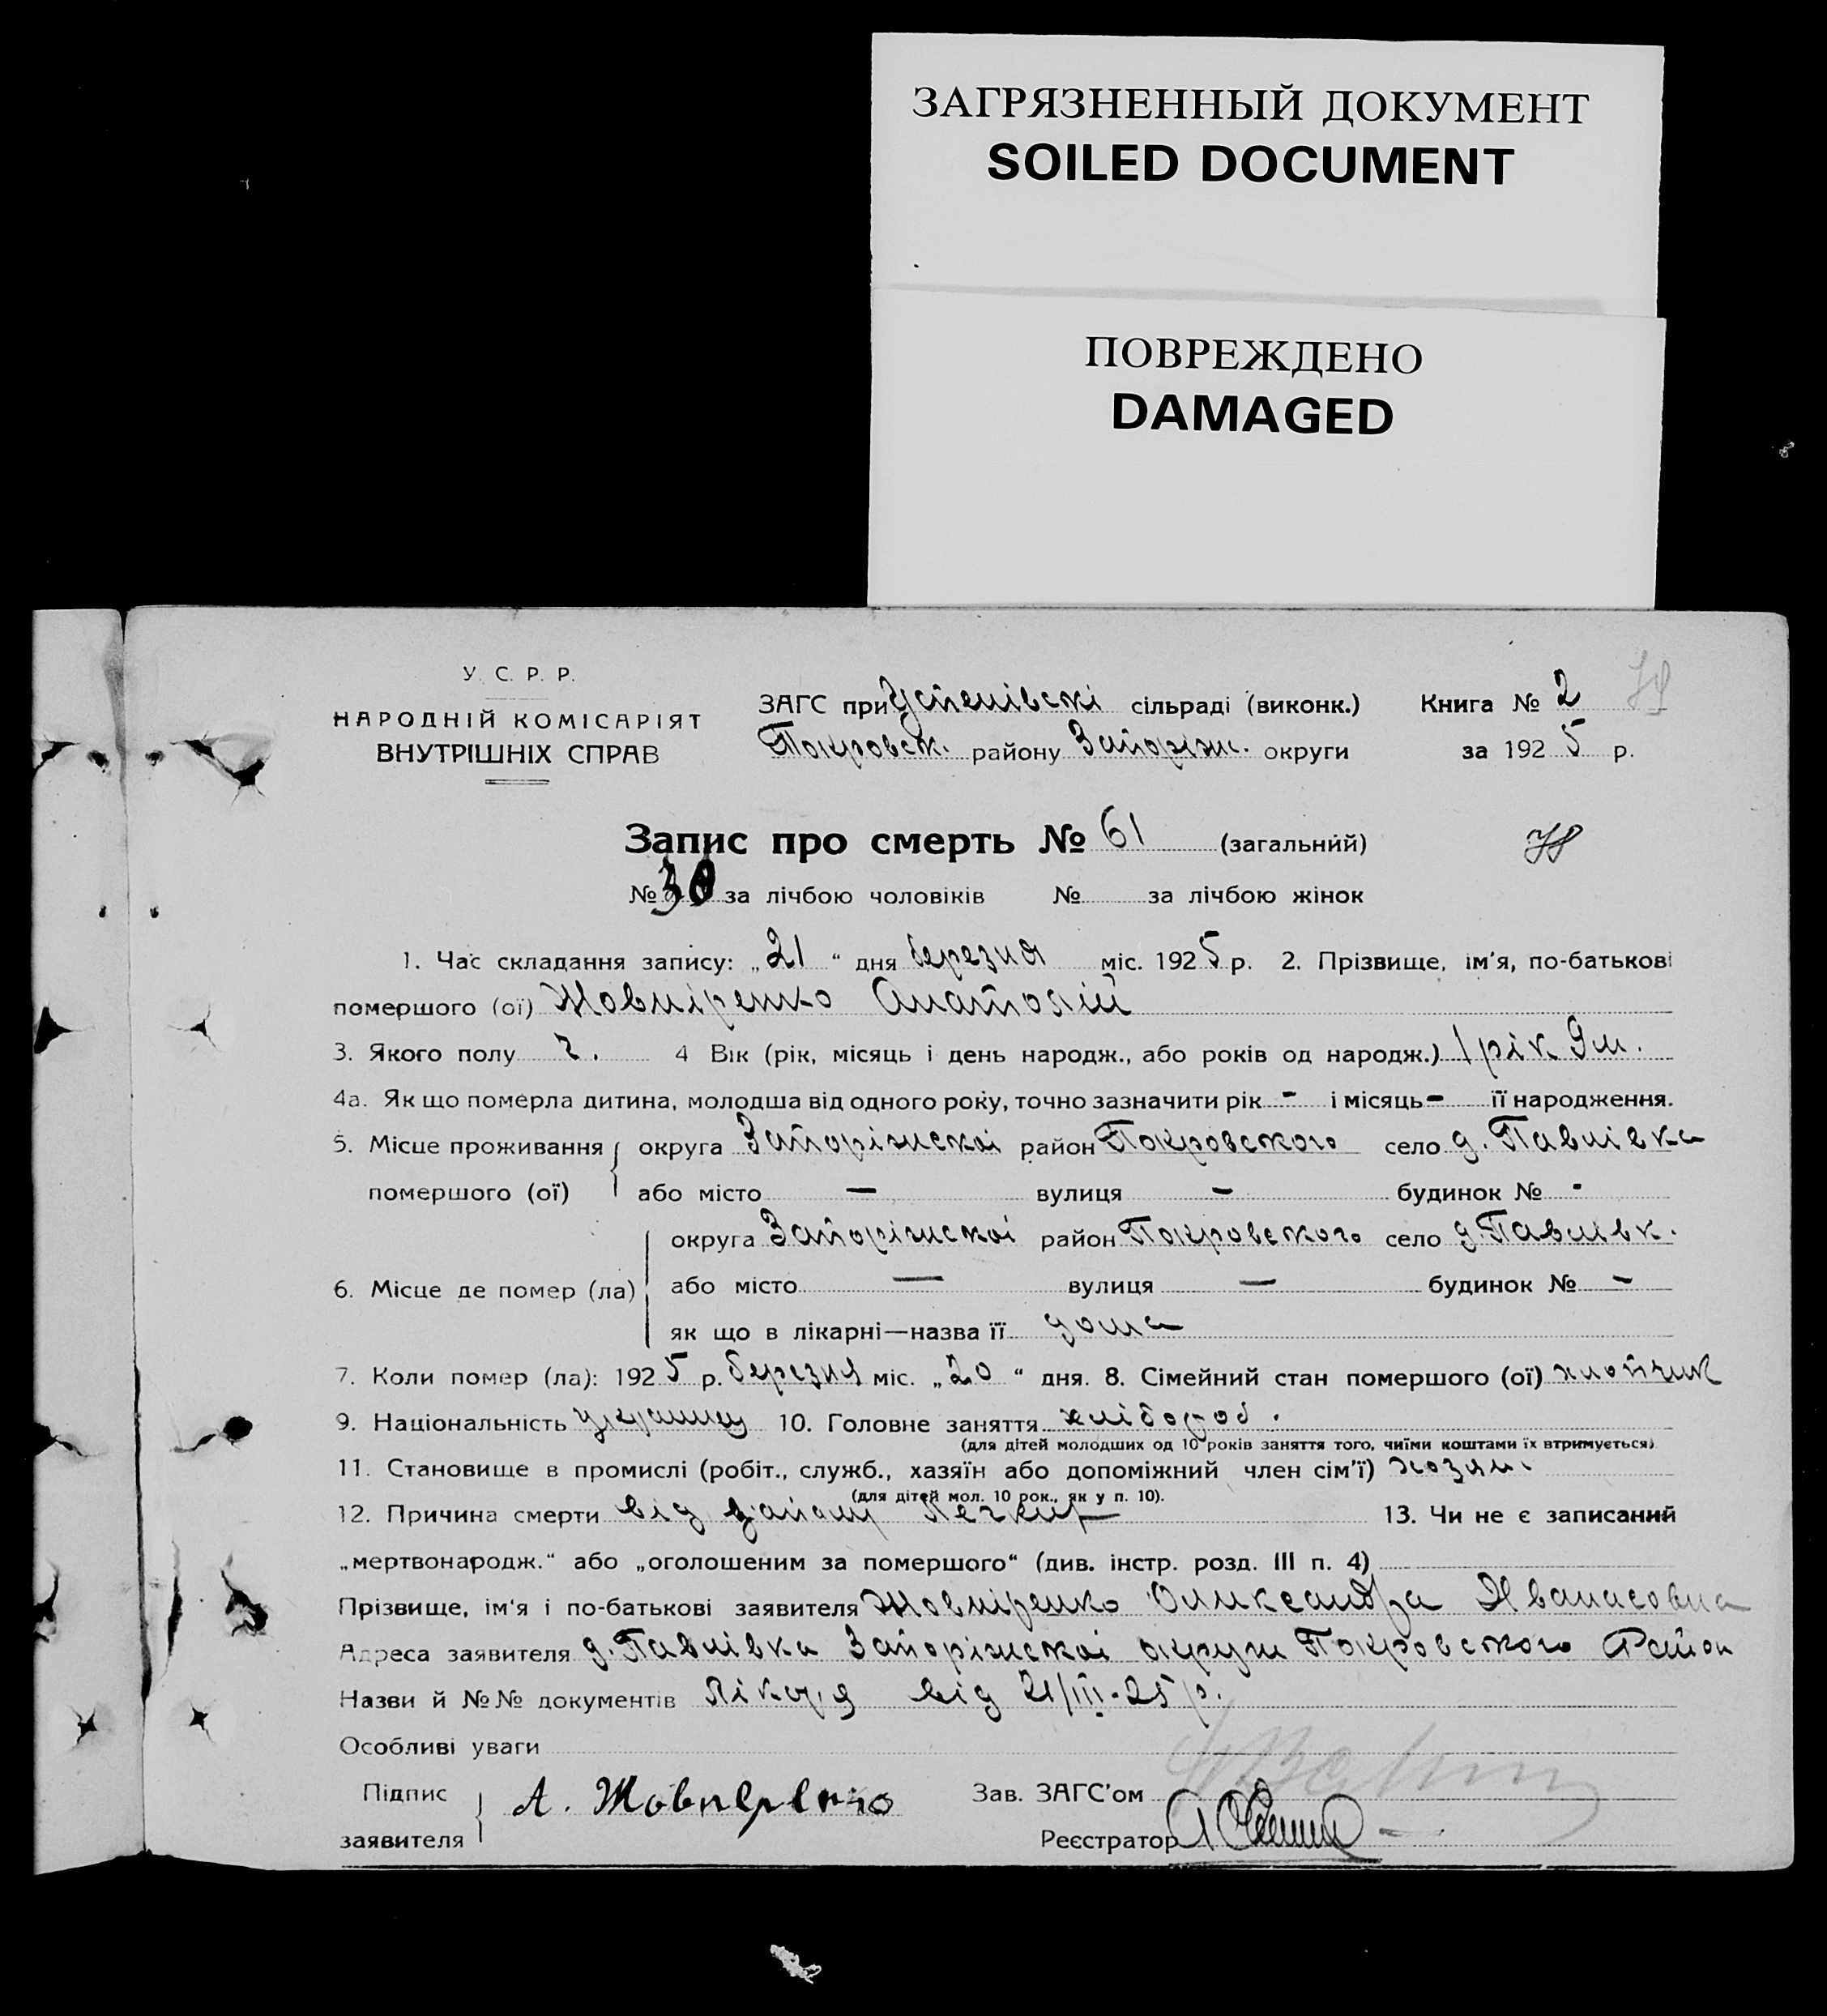 ЗАГРЯЗНЕННЫЙ ДОКУМЕНТ
SOILED DOCUMENT
ПОВРЕЖДЕНО
DAMAGED
У. С. Р. Р.
НАРОДНІЙ КОМІСАРІЯТ
ВНУТРІШНІХ СПРАВ
ЗАГС при Успенівскі сільраді (виконк.) Книга № 2
Покровськ. району Запоріж. округи за 1925 р.
Запис про смерть № 61 (загальний)
№ 30 за лічбою чоловіків № за лічбою жінок
1. Час складання запису: „21“ дня березня міс. 1925 р. 2. Прізвище, ім'я, по-батькові
помершого (ої) Жовніренко Анатолій
3. Якого полу ч. 4 Вік (рік, місяць і день народж., або років од народж.) 1 рік 9 м.
4а. Як що померла дитина, молодша від одного року, точно зазначити рік - і місяць - її народження.
5. Місце проживання помершого (ої) округа Запоріжскої район Покровського село д. Павлівка
або місто — вулиця — будинок № -
6. Місце де помер (ла) округа Запоріжскої район Покровського село д. Павлівк.
або місто — вулиця — будинок № —
як що в лікарні—назва її дома
7. Коли помер (ла): 1925 р. березня міс. „20“ дня. 8. Сімейний стан помершого (ої) хлопчик
9. Національність українец 10. Головне заняття хлібороб.
(для дітей молодших од 10 років заняття того, чиїми коштами їх втримується)
11. Становище в промислі (робіт., служб., хазяїн або допоміжний член сім'ї) хозяін
(для дітей мол. 10 рок., як у п. 10).
12. Причина смерти від 13. Чи не є записаний
„мертвонародж.“ або „оголошеним за помершого“ (див. інстр. розд. III п. 4)
Прізвище, ім'я і по-батькові заявителя Жовніренко Оликсандра
Адреса заявителя д. Павлівка Запоріжскої округи Покровського Район
Назви й №№ документів Лікаря від 21/III-25 р.
Особливі уваги
Підпис заявителя А. Жовніренко Зав. ЗАГС'ом
Реєстратор